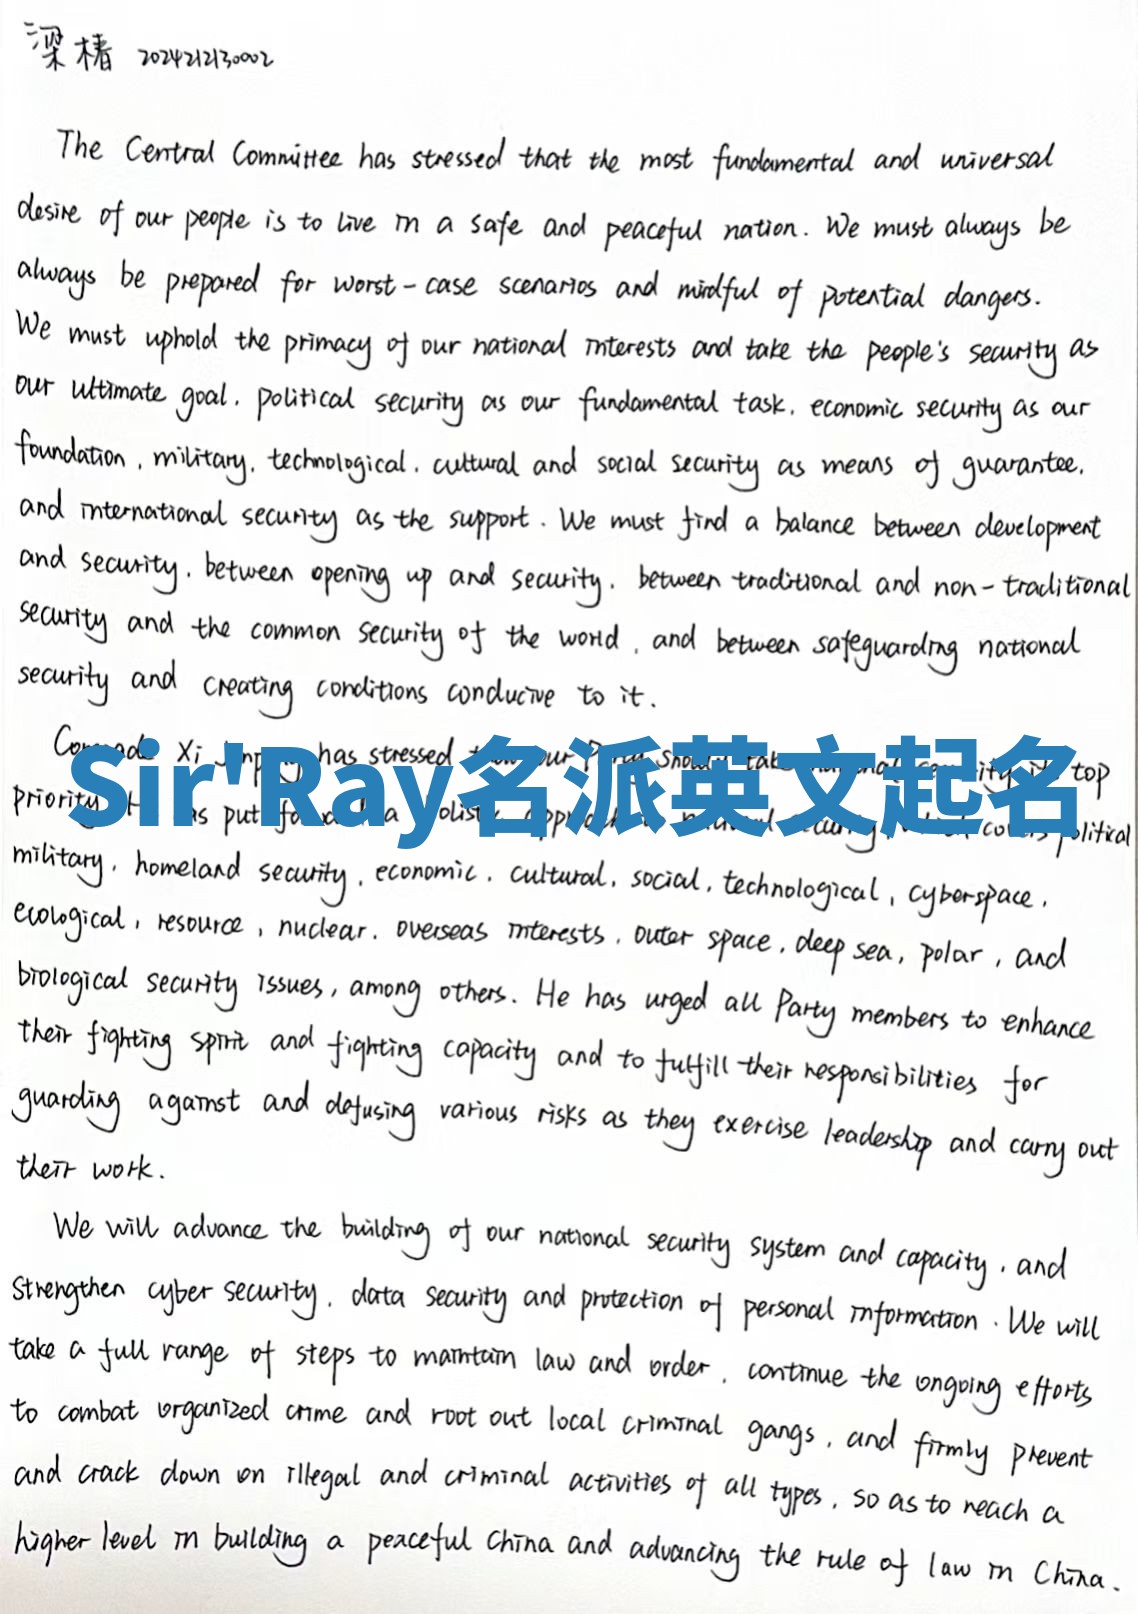 梁椿 2024212130002
The Central Committee has stressed that the most fundamental and universal
desire of our people is to live in a safe and peaceful nation. We must always be
always be prepared for worst-case scenarios and mindful of potential dangers.
We must uphold the primacy of our national interests and take the people's security as
our ultimate goal, political security as our fundamental task, economic security as our
foundation, military, technological, cultural and social security as means of guarantee,
and international security as the support. We must find a balance between development
and security, between opening up and security, between traditional and non-traditional
security and the common security of the world, and between safeguarding national
security and creating conditions conducive to it.
Comrade Xi Jinping has stressed our Party should take national security its top
Sir'Ray名派英文起名
priority. has put forward a holistic approach national security, which covers political
military, homeland security, economic, cultural, social, technological, cyberspace,
ecological, resource, nuclear, overseas interests, outer space, deep sea, polar, and
biological security issues, among others. He has urged all Party members to enhance
their fighting spirit and fighting capacity and to fulfill their responsibilities for
guarding against and defusing various risks as they exercise leadership and carry out
their work.
We will advance the building of our national security system and capacity, and
strengthen cyber security, data security and protection of personal information. We will
take a full range of steps to maintain law and order, continue the ongoing efforts
to combat organized crime and root out local criminal gangs, and firmly prevent
and crack down on illegal and criminal activities of all types, so as to reach a
higher level in building a peaceful China and advancing the rule of law in China.